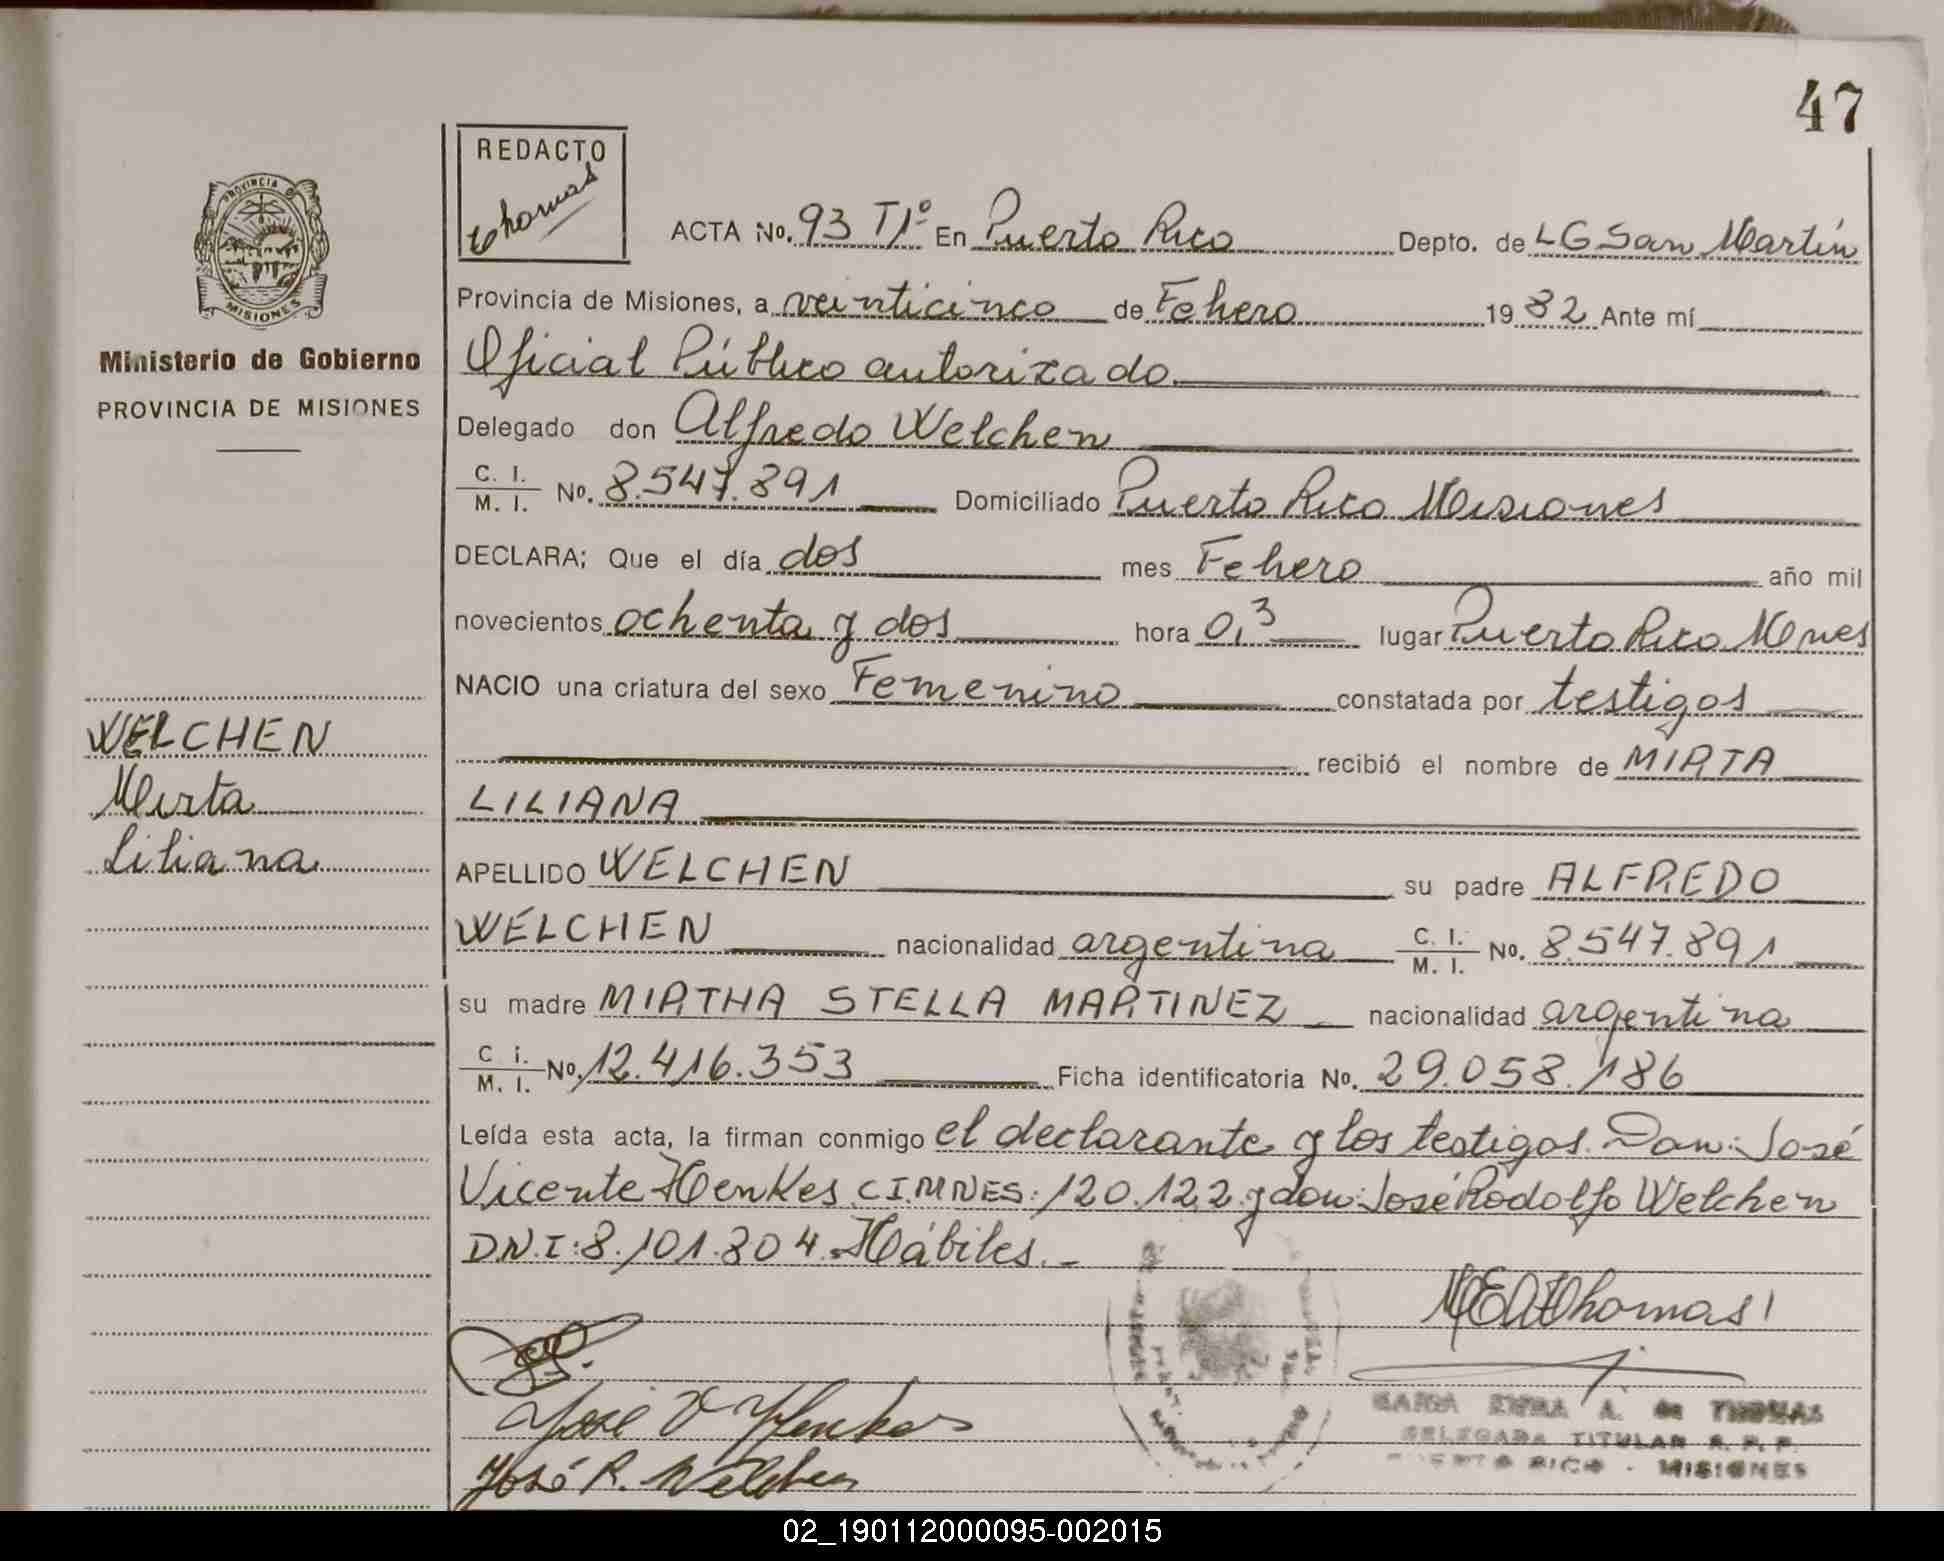 47
REDACTO
Thomas
PROVINCIA DE
MISIONES
Ministerio de Gobierno
PROVINCIA DE MISIONES
ACTA No. 93 T1º En Puerto Rico Depto. de LG San Martín
Provincia de Misiones, a veinticinco de Febrero 1982 Ante mí
Oficial Público autorizado.
Delegado don Alfredo Welchen
C. I. / M. I. No. 8.547.891 Domiciliado Puerto Rico Misiones
DECLARA; Que el día dos mes Febrero año mil
novecientos ochenta y dos hora 0,3 lugar Puerto Rico Mnes
NACIO una criatura del sexo Femenino constatada por testigos
recibió el nombre de MIRTA
LILIANA
WELCHEN
Mirta
Liliana
APELLIDO WELCHEN su padre ALFREDO
WELCHEN nacionalidad argentina C. I. / M. I. No. 8.547.891
su madre MIRTHA STELLA MARTINEZ nacionalidad argentina
C i. / M. I. No. 12.416.353 Ficha identificatoria No. 29.058.186
Leída esta acta, la firman conmigo el declarante y los testigos. Don: José
Vicente Henkes C.I.MNES: 120.122 y don: José Rodolfo Welchen
D.N.I: 8.101.804. Hábiles. -
MEAThomas
José V Henkes
José R. Welchen
MARIA ELENA A. de THOMAS
DELEGADA TITULAR R. P. P.
PUERTO RICO - MISIONES
02_190112000095-002015